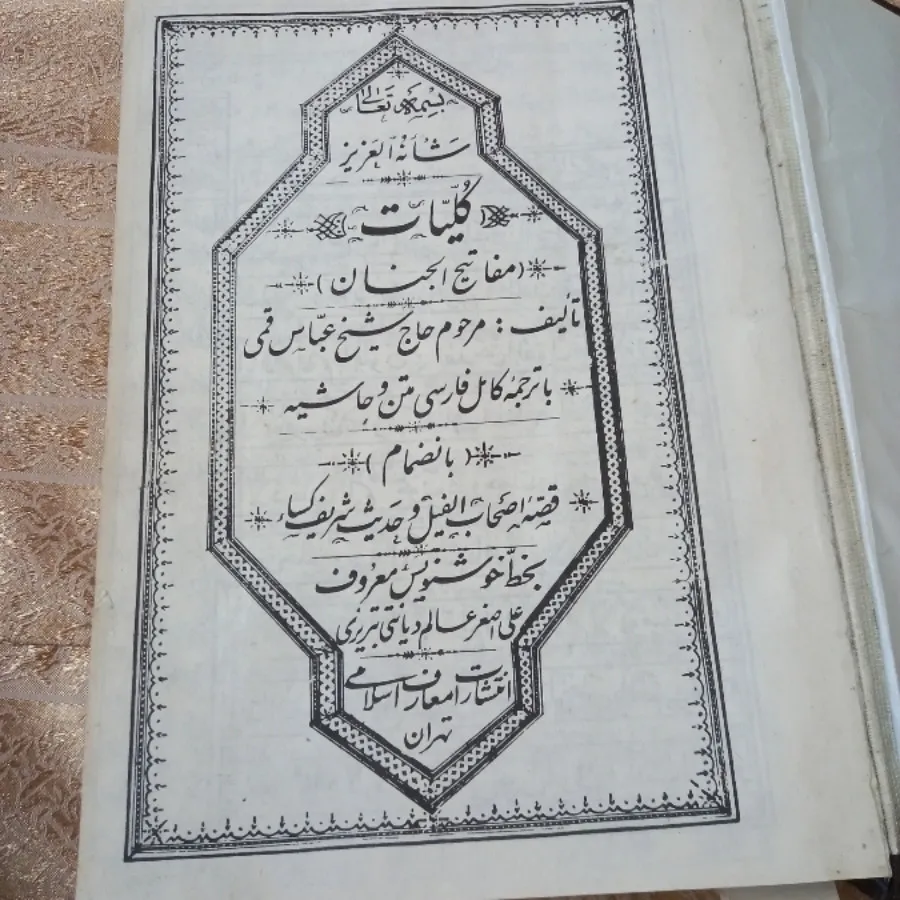 بسمه تعالی
شأنه العزیز
کُلّیّات
(مفاتیح الجنان)
تألیف: مرحوم حاج شیخ عبّاس قمی
با ترجمۀ کامل فارسی متن و حاشیه
(بانضمام)
قصّۀ اصحاب الفیل و حدیث شریف کساء
بخطّ خوشنویس معروف
علی اصغر عالم دیانتی تبریزی
انتشارات معارف اسلامی
تهران